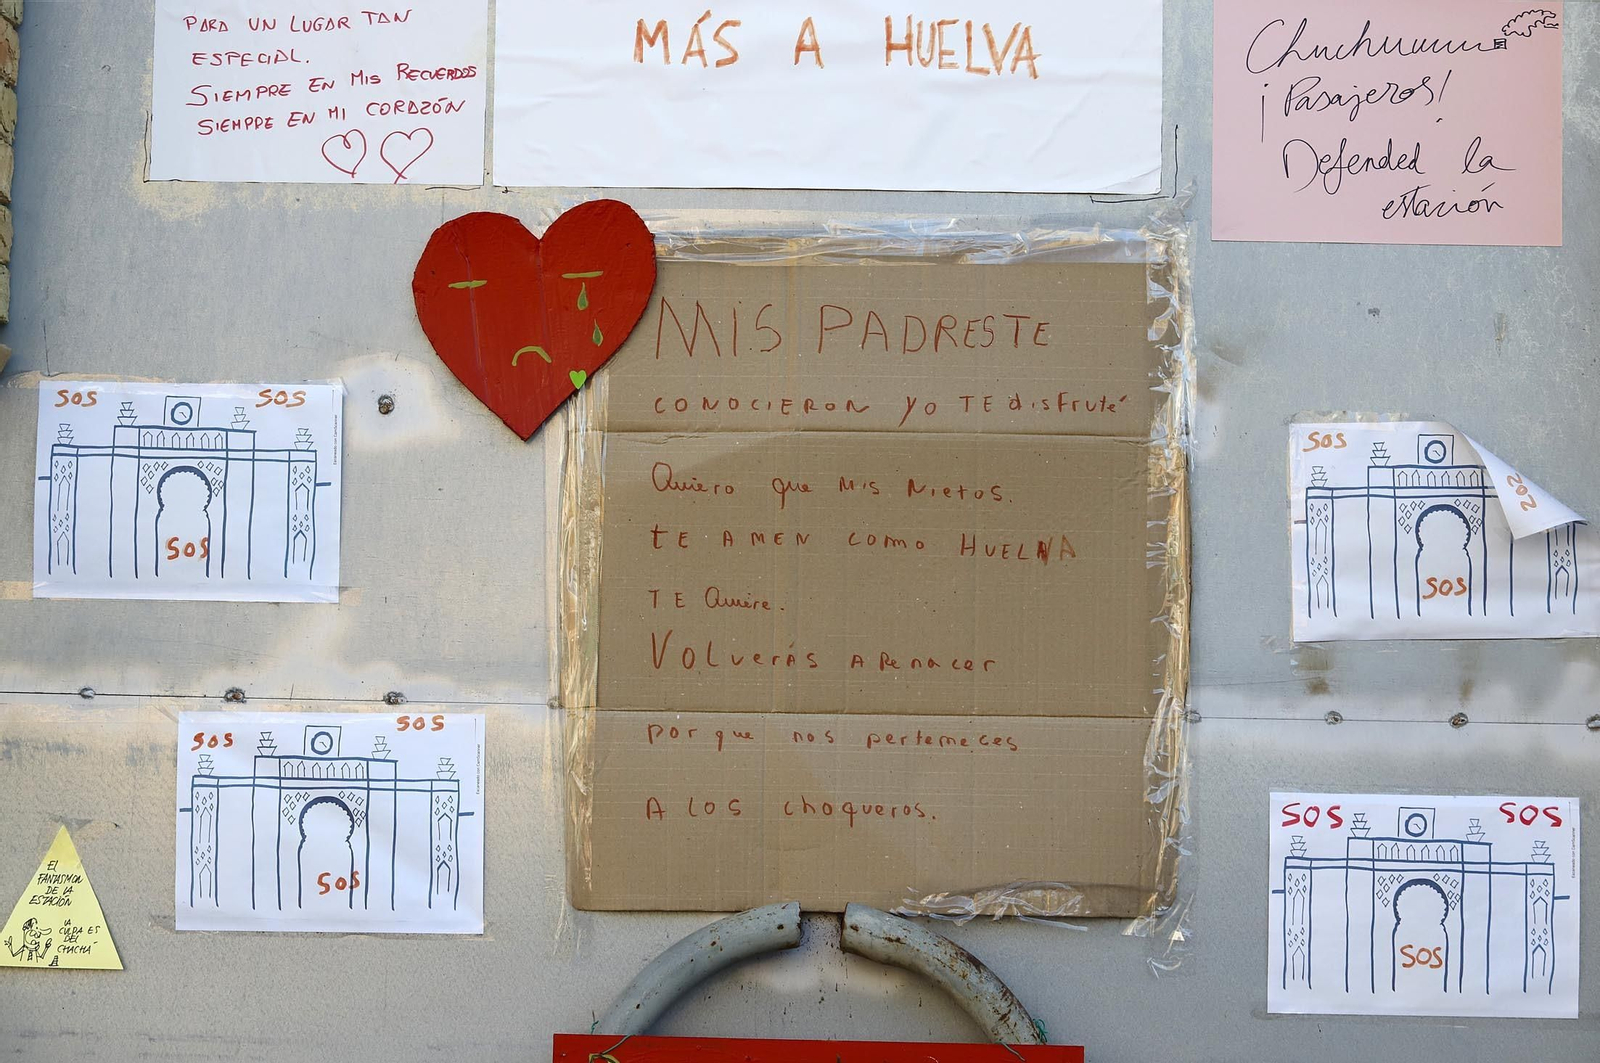 PARA UN LUGAR TAN
ESPECIAL.
SIEMPRE EN MIS RECUERDOS
SIEMPRE EN MI CORAZÓN
MÁS A HUELVA
Chuchuuuuu
¡Pasajeros!
Defended la
estación
MIS PADRES TE
CONOCIERON YO TE disfruté
Quiero que mis Nietos.
tE AMEN como HUELVA
TE Quiere.
VOLverás A Renacer
por que nos perteneces
A LOS choqueros.
SOS SOS
SOS
SOS SOS
SOS
SOS
SOS
SOS
SOS SOS
SOS
EL
FANTASMA
DE LA
ESTACIÓN
LA
CULPA ES
DEL
CHACHÁ